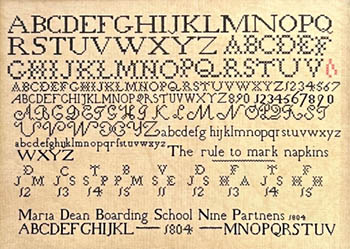 ABCDEFGHIJKLMNOPQ
RSTUVWXYZ ABCDEF
GHIJKLMNOPQRSTUV A
ABCDEFGHIJKLMNOPQRSTUVWXYZ1234567
ABCDEFGHIJKLMNOPQRSTUVWXYZ890 1234567890
ABCDEFGHIJKLMNOPQRST
UVWXYZ abcdefg hijklmnopqrstuvwxyz
abcdefghijklmnopqrstuvwxyz
WXYZ The rule to mark napkins
D C T B V F T S F
J M J S P P M S E J S H A J F S H
12 13 14 15 12 13 14 15
Maria Dean Boarding School Nine Partners 1804
ABCDEFGHIJKL 1804 MNOPQRSTUV